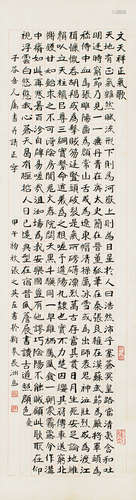 文天祥正氣歌
天地有正氣雜然賦流形下則為河嶽上則為日星於人曰浩然沛乎塞蒼冥皇路當清夷
含和吐明庭時窮節乃見一一垂丹青在齊太史簡在晉董狐筆在秦張良椎在漢蘇武節為嚴將軍頭為
嵇侍中血為張睢陽齒為顏常山舌或為遼東帽清操厲冰雪或為出師表鬼神泣壯烈或為渡江楫慷
慨吞胡羯或為擊賊笏逆豎頭破裂是氣所磅礴凜烈萬古存當其貫日月生死安足論地維
賴以立天柱賴以尊三綱實繫命道義為之根嗟余遘陽九隸也實不力楚囚纓其冠傳車送窮北鼎鑊甘如
飴求之不可得陰房闃鬼火春院閟天黑牛驥同一皂雞棲鳳凰食一朝蒙霧露分作溝
中瘠如此再寒暑百沴自辟易嗟哉沮洳場為我安樂國豈有他繆巧陰陽不能賊顧此耿耿在仰
視浮雲白悠悠我心悲蒼天曷有極哲人日已遠典刑在夙昔風檐展書讀古道照顏色
屬書并請正字 甲申